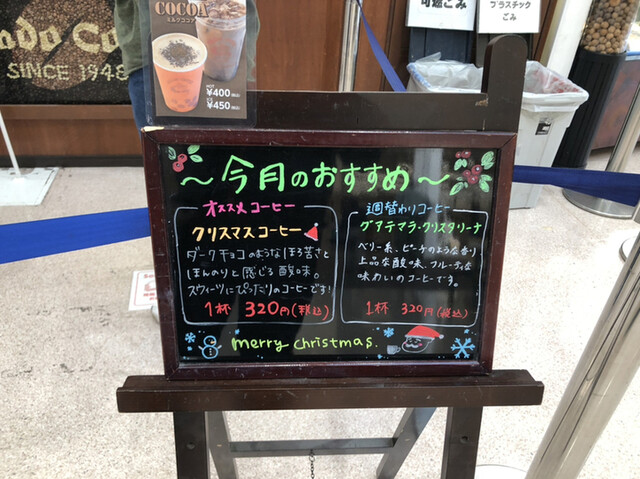 COCOA
ミルクココア
¥400(税込)
¥450(税込)
SINCE 1948
可燃ごみ
プラスチック
ごみ
～今月のおすすめ～
オススメコーヒー
クリスマスコーヒー
ダークチョコのようなほろ苦さと
ほんのりと感じる酸味。
スウィーツにぴったりのコーヒーです!
1杯 320円(税込)
週替わりコーヒー
グアテマラ・クリスタリーナ
ベリー系、ピーチのような香り
上品な酸味、フルーティな
味わいのコーヒーです。
1杯 320円(税込)
merry christmas.